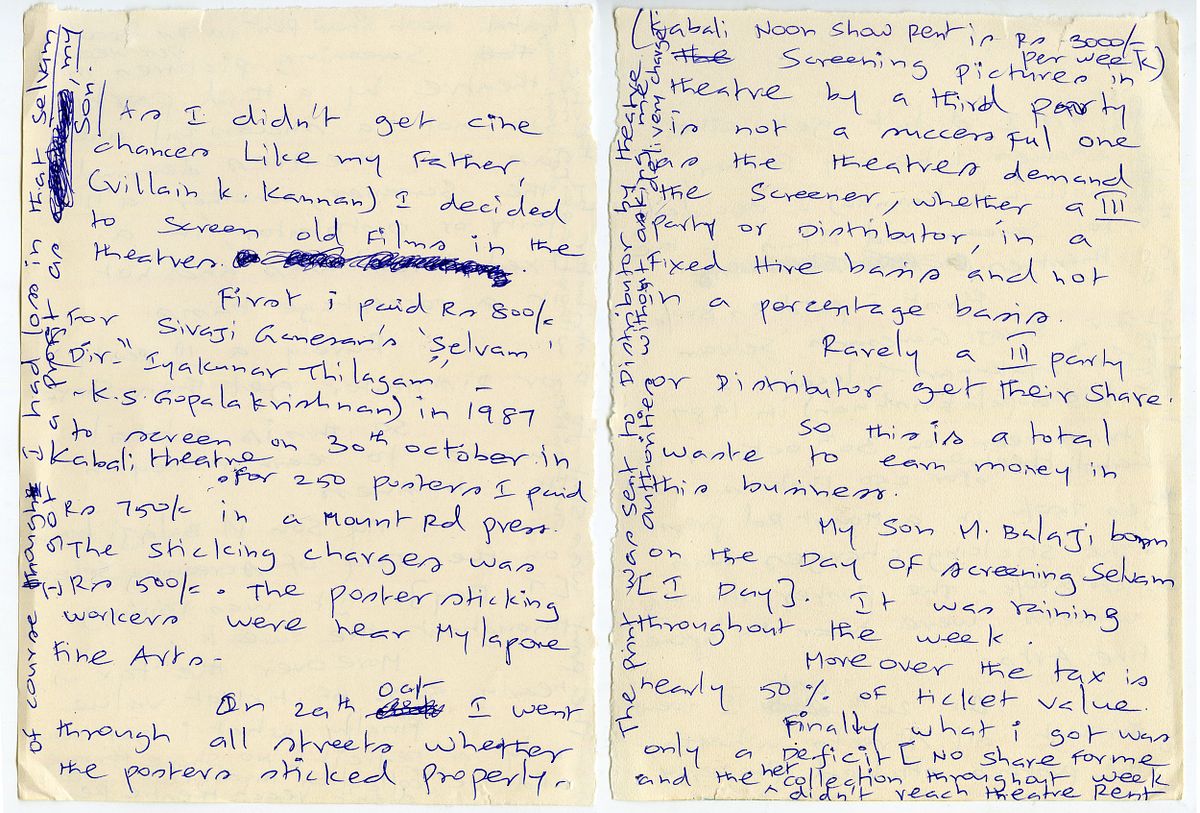 As I didn't get cine
chances Like my Father,
(villain K. Kannan) I decided
to screen old Films in the
theatres.
First i paid Rs 800/-
For Sivaji Ganesan's 'Selvam'
Dir- "Iyakunar Thilagam" -
-K.S. Gopalakrishnan) in 1987
to screen on 30th october in
Kabali theatre
for 250 posters I paid
Rs 750/- in a Mount Rd press.
The sticking charges was
Rs 500/-. The poster sticking
workers were near Mylapore
Fine Arts-
On 29th Oct I went
through all streets whether
the posters sticked properly.
of course I had loss in that Selvam
I got a profit as , my
Son.
(Kabali Noon show Rent is Rs 3000/-
per week)
Screening pictures in
theatre by a third party
is not a successful one
as the theatres demand
the screener, whether a III
party or Distributor, in a
Fixed Hire basis and not
in a percentage basis.
Rarely a III party
or Distributor get their share.
So this is a total
waste to earn money in
this business.
My Son M. Balaji born
on the Day of screening Selvam
[I Day]. It was raining
throughout the week.
Moreover the tax is
nearly 50% of ticket value.
Finally what i got was
only a Deficit [No share for me
and the net collection throughout week
didn't reach theatre Rent
The print was sent to Distributor by theatre
authorities without asking me
delivery charge